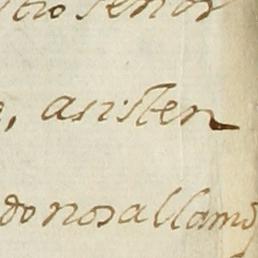 señor
, asisten
do nos allamos